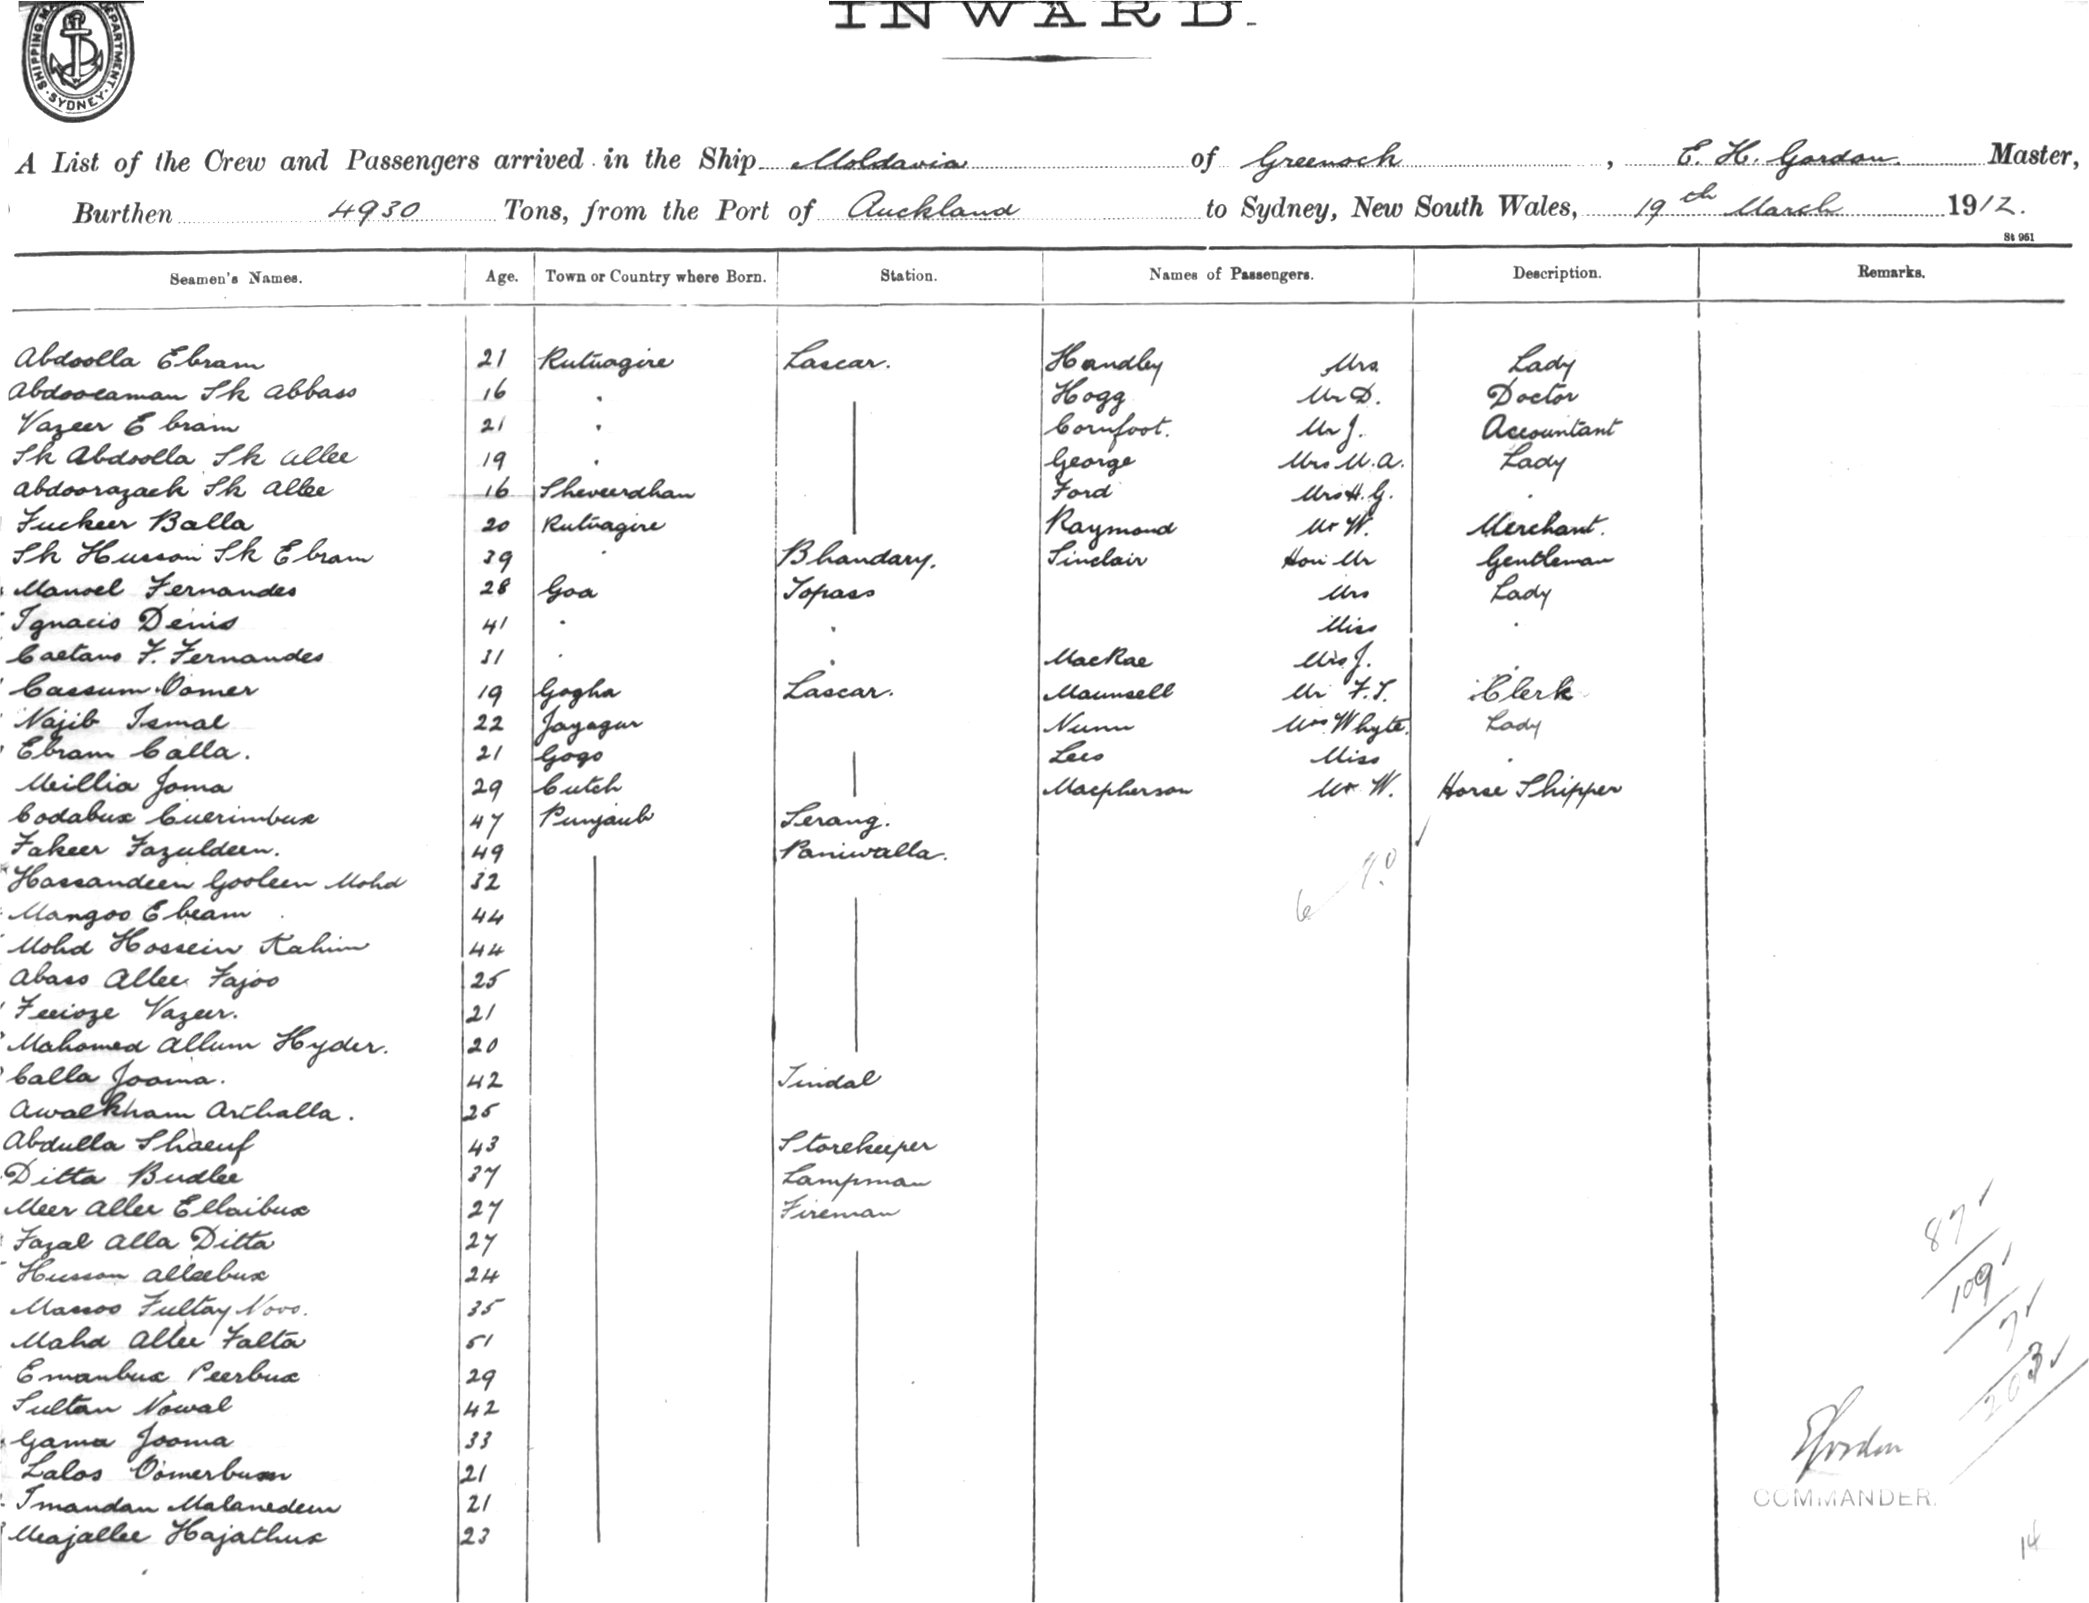 INWARD.
SHIPPING DEPARTMENT. SYDNEY
A List of the Crew and Passengers arrived in the Ship Moldavia of Greenock, E. H. Gordon Master,
Burthen 4930 Tons, from the Port of Auckland to Sydney, New South Wales, 19th March 1912.
St 961
Seamen's Names. Age. Town or Country where Born. Station. Names of Passengers. Description. Remarks.
Abdoolla Ebram 21 Rutnagire Lascar. Handley Mrs Lady
Abdoolaman Sk Abbass 16 " Hogg Mr D. Doctor
Vazeer Ebram 21 " Cornfoot. Mr J. Accountant
Sk Abdoolla Sk Allee 19 " George Mrs M. A. Lady
Abdoorazack Sk Allee 16 Sheveerdhan Ford Mrs H. G. "
Fuckeer Balla 20 Rutnagire Raymond Mr W. Merchant.
Sk Husson Sk Ebram 39 " Bhandary. Sinclair Hon Mr Gentleman
Manoel Fernandes 28 Goa Topass Mrs Lady
Ignacio Denis 41 " " Miss "
Caetano F. Fernandes 31 " " MacRae Mrs J. "
Cassum Oomer 19 Gogha Lascar. Maunsell Mr F. T. Clerk
Najib Ismal 22 Jaygur Nunn Mrs Whyte. Lady
Ebram Calla. 21 Gogo Lees Miss "
Meillia Joma 29 Cutch Macpherson Mr W. Horse Shipper
Codabux Cuerimbux 47 Punjaub Serang.
Fakeer Fazuldeen. 49 Paniwalla.
Hassandeen Gooleen Mohd 32
Mangoo Ebram 44
Mohd Hossein Rahim 44
Abass Allee Fajoo 25
Feeioze Vazeer. 21
Mahomed Allum Hyder. 20
Calla Jooma. 42 Tindal
Awalkham Arthalla. 25
Abdulla Shaeuf 43 Storekeeper
Ditta Budlee 37 Lampman
Meer Allee Ellaibux 27 Fireman
Fazal Alla Ditta 27
Husson Alleebux 24
Massoo Fultay Novo. 35
Mahd Allee Falta 51
Emanbux Peerbux 29
Sultan Nowal 42
Gama Jooma 33
Lalos Oomerbuxn 21
Imandan Malanedeen 21
Meajallee Hajathux 23
87
109
7
203
EGordon
COMMANDER.
14